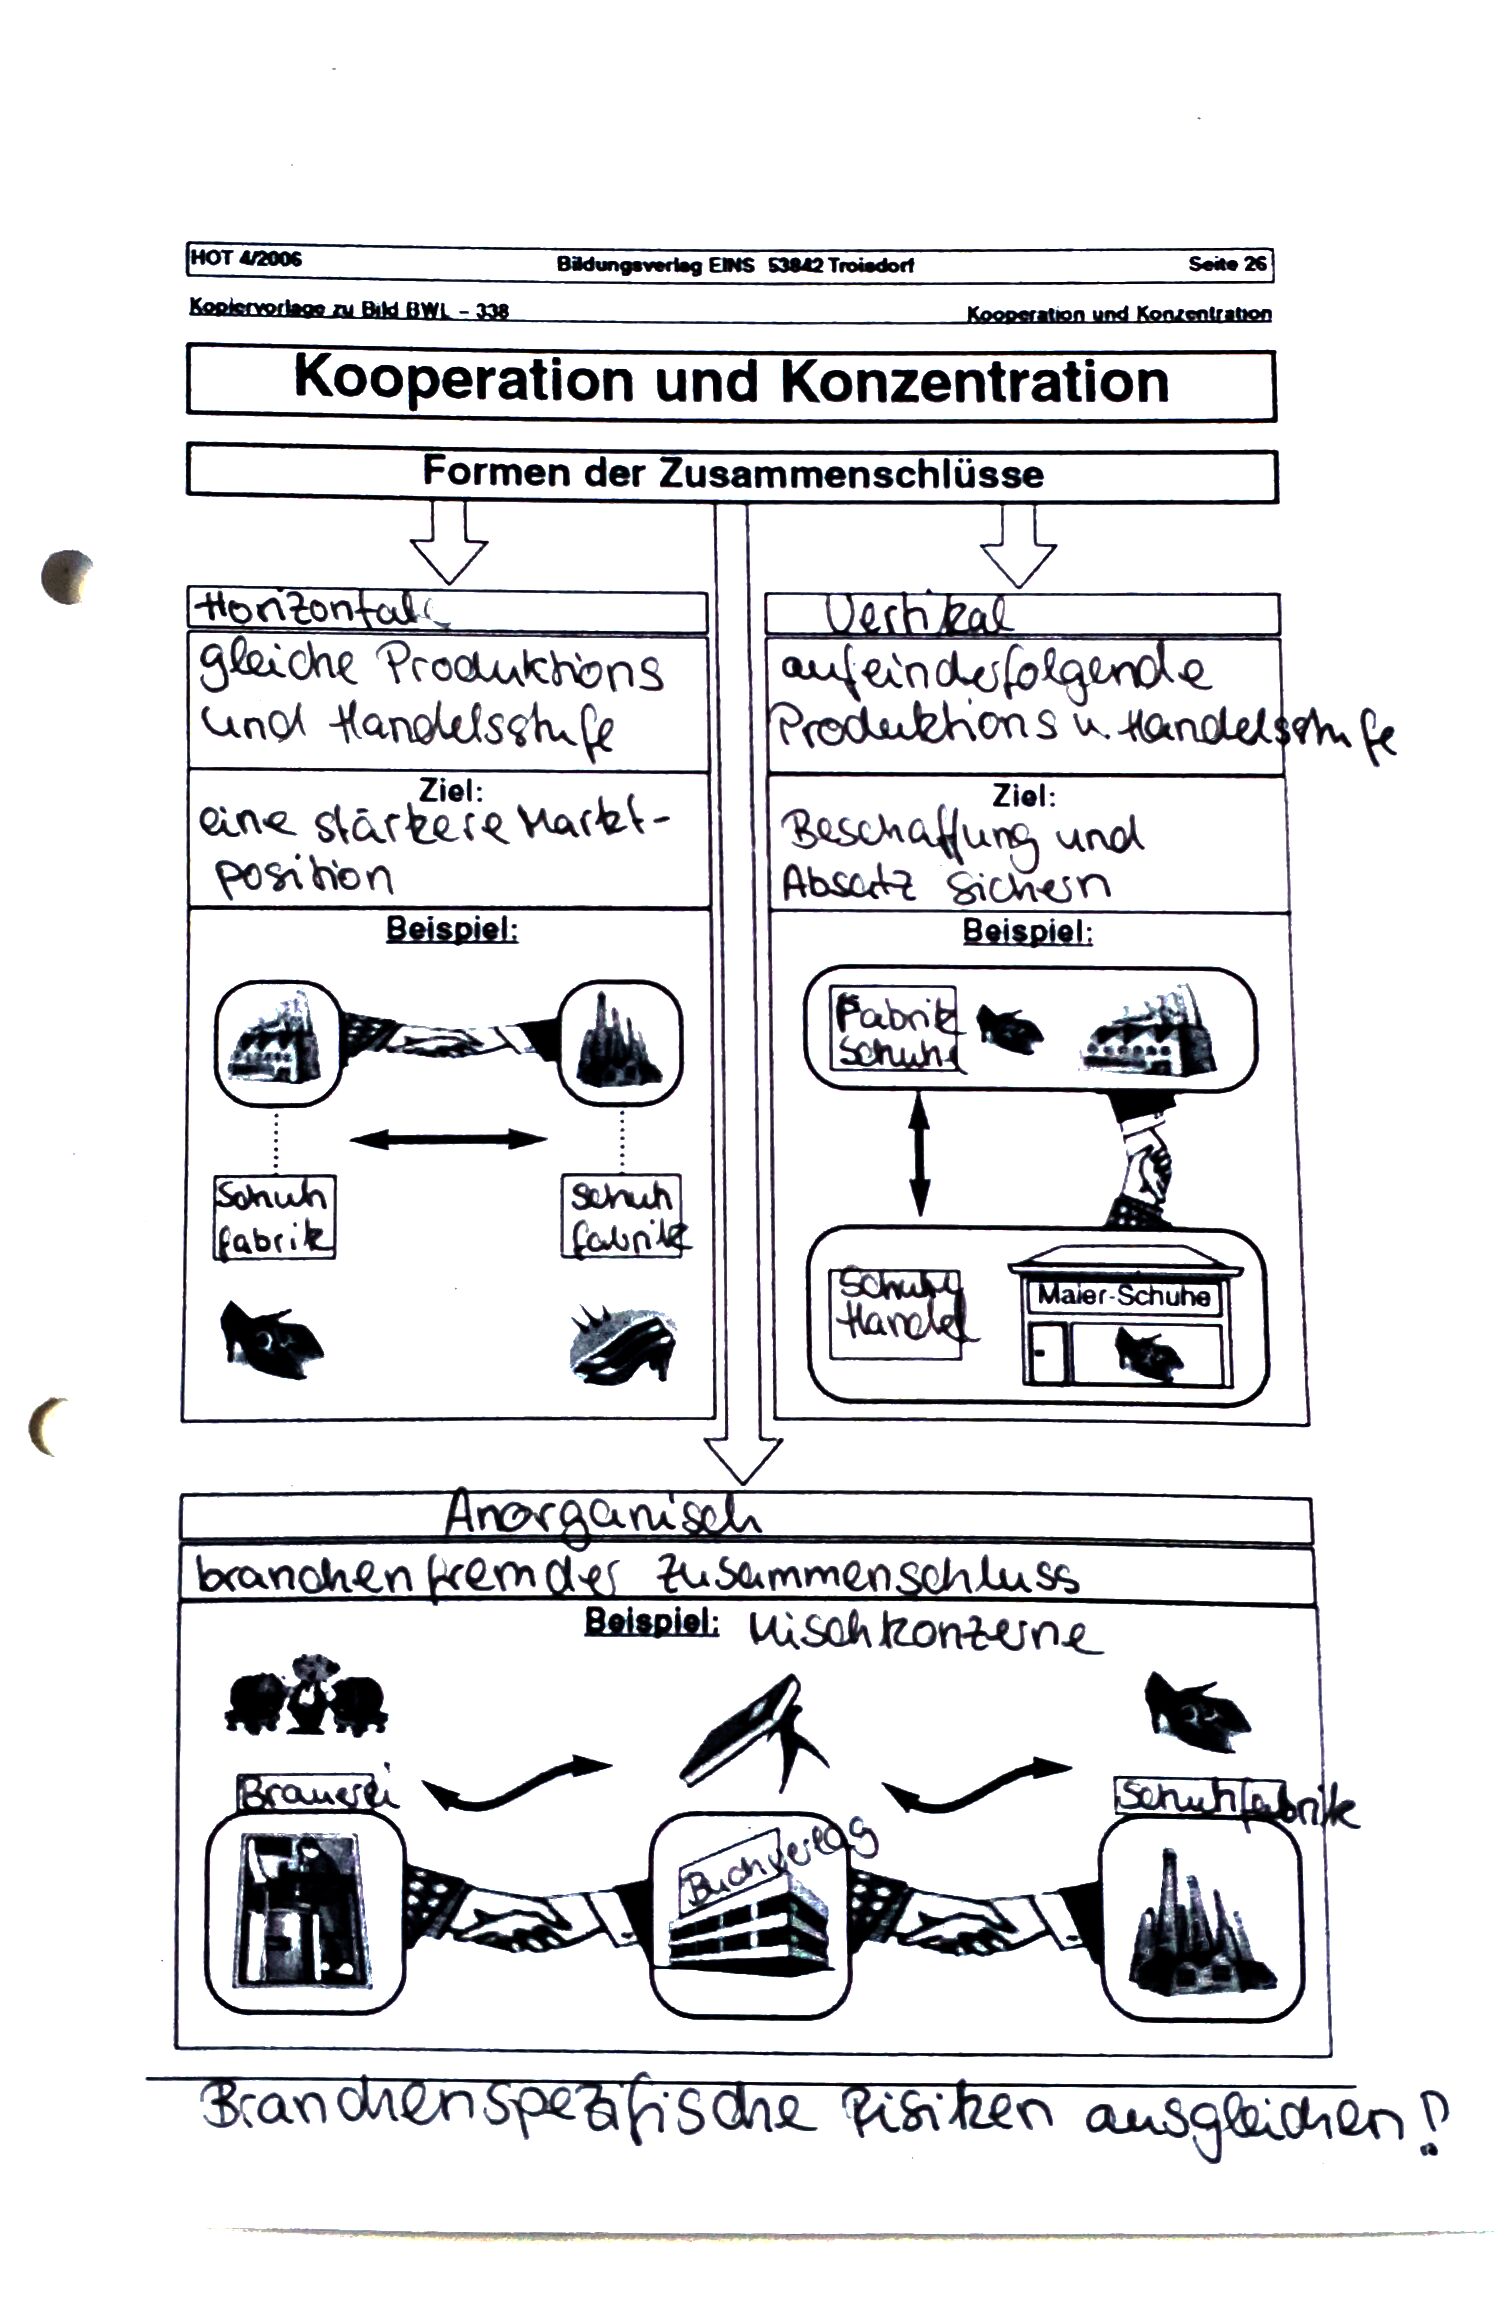 HOT 4/2006 Bildungsverlag EINS 53842 Troisdorf Seite 26
Kopiervorlage zu Bild BWL - 338 Kooperation und Konzentration
Kooperation und Konzentration
Formen der Zusammenschlüsse
Horizontal
gleiche Produktions
und Handelsstufe
Ziel:
eine stärkere Markt-
position
Beispiel:
Schuh
fabrik
Schuh
fabrik
Vertikal
aufeinderfolgende
Produktions u. Handelsstufe
Ziel:
Beschaffung und
Absatz sichern
Beispiel:
Fabrik
Schuh
Schuh
Handel
Maier-Schuhe
Anorganisch
branchenfremder Zusammenschluss
Beispiel: Mischkonzerne
Brauerei
Buchverlag
Schuhfabrik
Branchenspezifische Risiken ausgleichen!